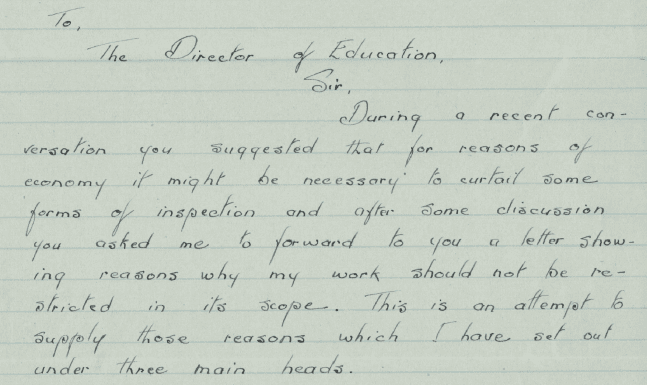 To,
The Director of Education,
Sir,
During a recent con-
versation you suggested that for reasons of
economy it might be necessary to curtail some
forms of inspection and after some discussion
you asked me to forward to you a letter show-
ing reasons why my work should not be re-
stricted in its scope. This is an attempt to
supply those reasons which I have set out
under three main heads.